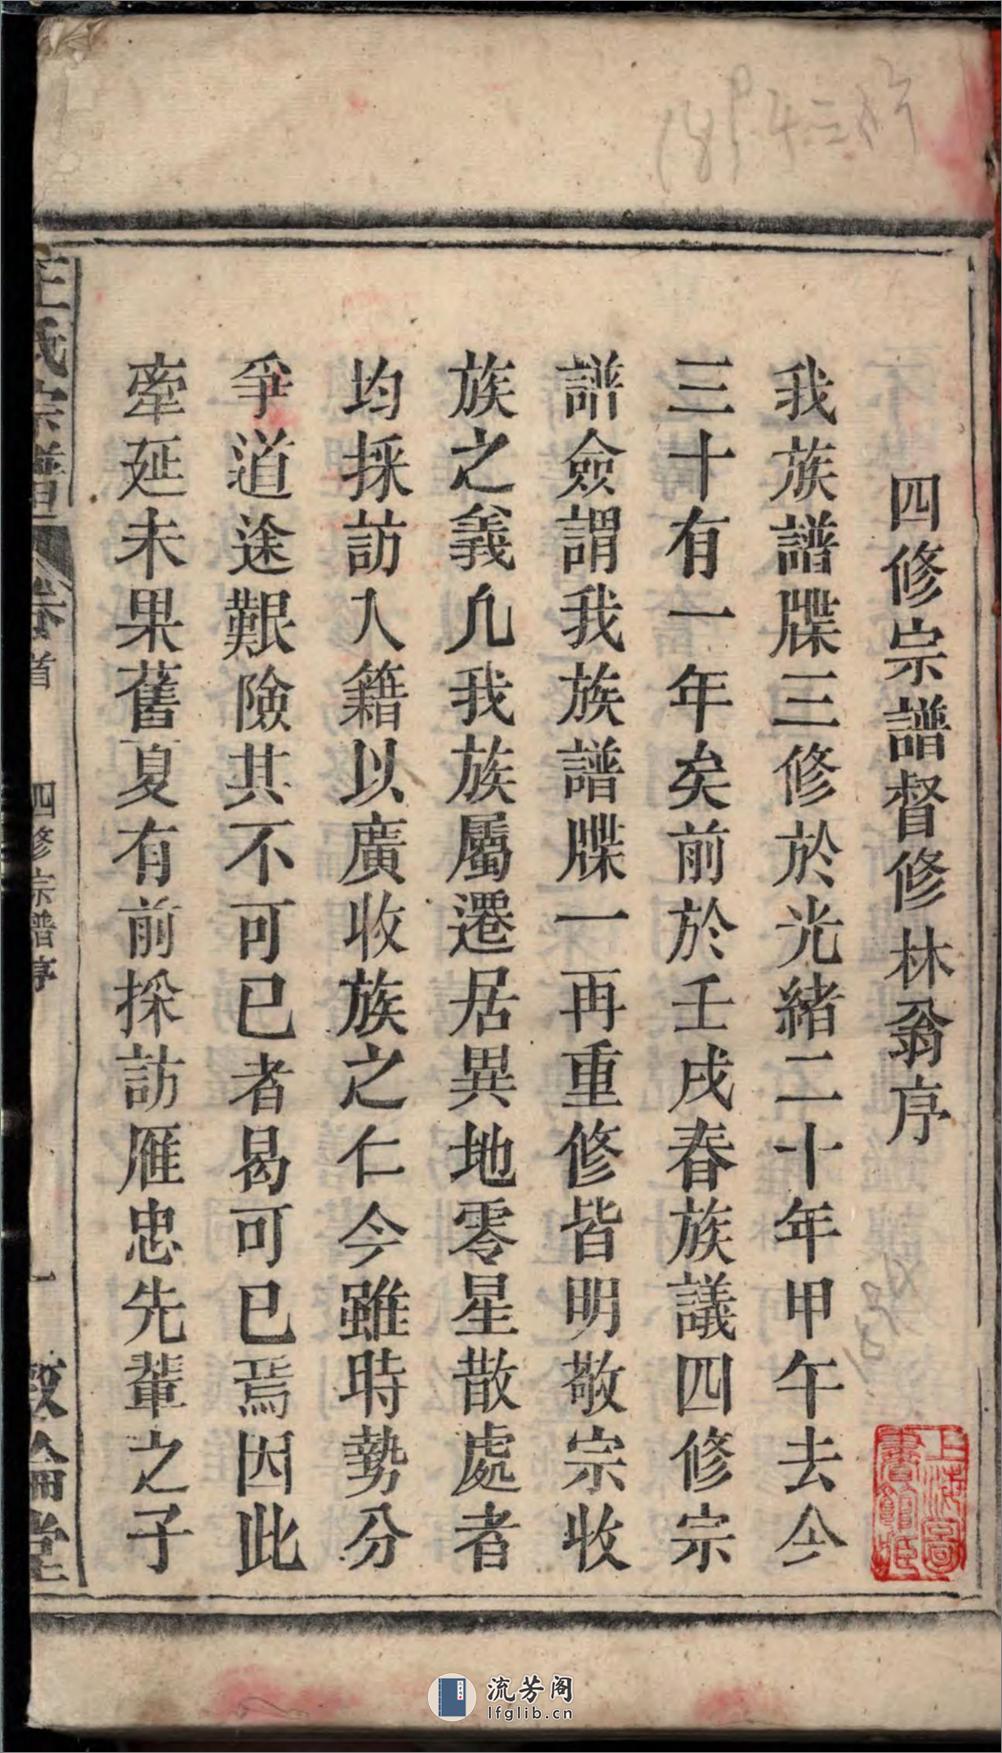 四修宗譜督修林翁序
我族譜牒三修於光緒二十年甲午去今
三十有一年矣前於壬戌春族議四修宗
譜僉謂我族譜牒一再重修皆明敬宗收
族之義凡我族屬遷居異地零星散處者
均採訪入籍以廣收族之仁今雖時勢分
爭道途艱險其不可已者曷可已焉因此
牽延未果舊夏有前採訪雁忠先輩之子
氏宗譜
卷首
四修宗譜序
一
敦倫堂
上海圖
書館
流芳阁
lfglib.cn